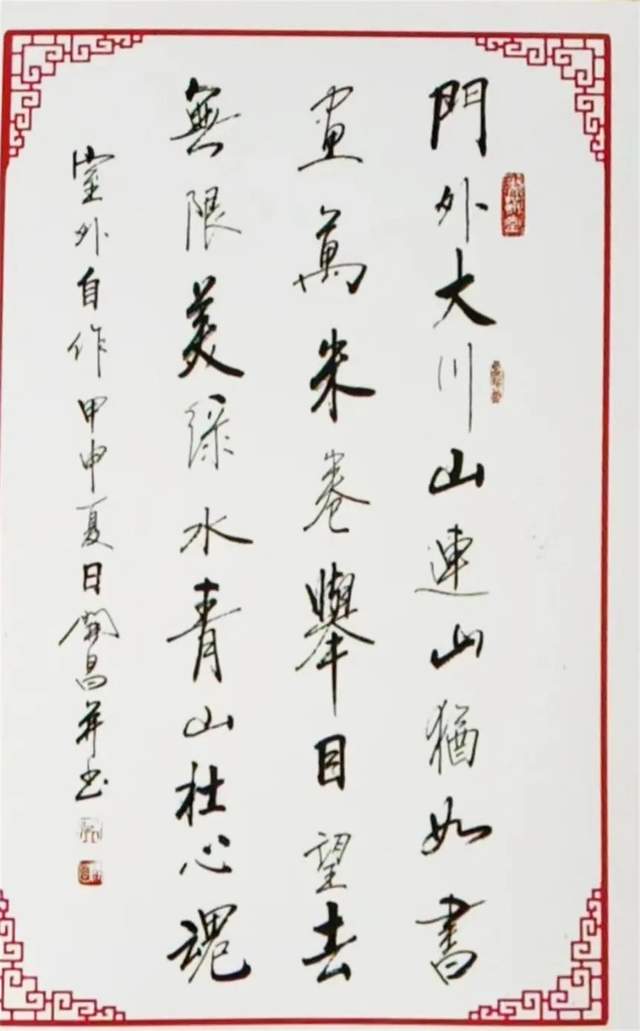 門外大川山連山猶如書
畫萬米卷舉目望去
無限美綠水青山壮心魂
室外自作甲申夏日開昌并书